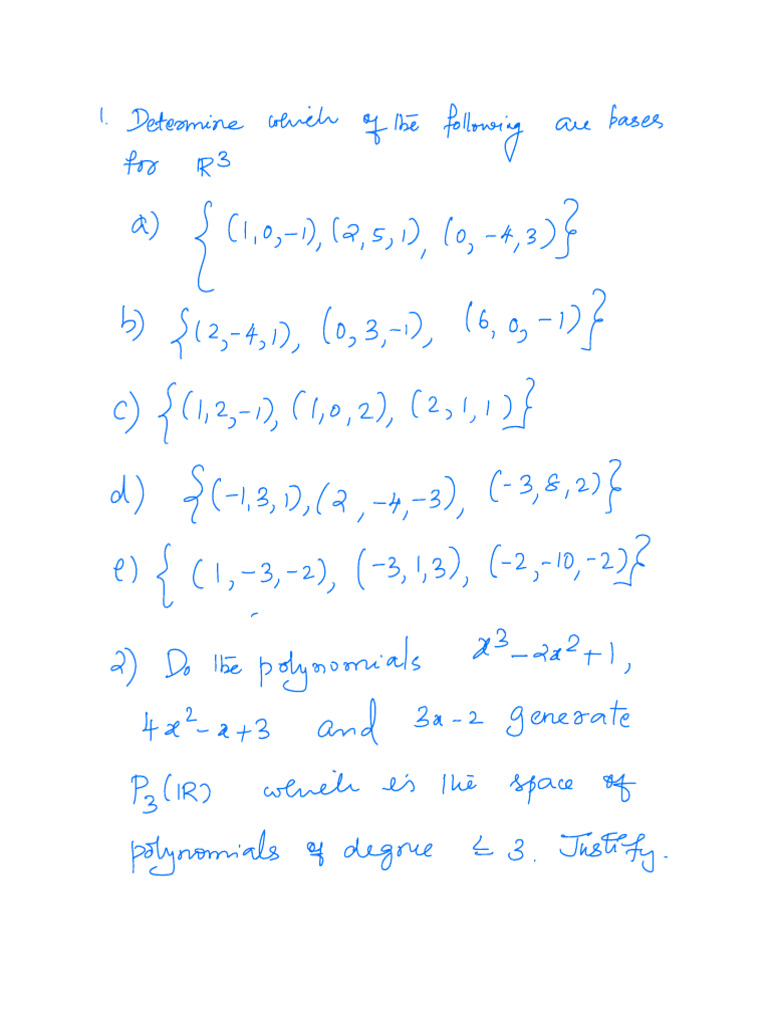 1. Determine which of the following are bases
for ℝ³
a) {(1,0,-1), (2,5,1), (0,-4,3)}
b) {(2,-4,1), (0,3,-1), (6,0,-1)}
c) {(1,2,-1), (1,0,2), (2,1,1)}
d) {(-1,3,1), (2,-4,-3), (-3,8,2)}
e) {(1,-3,-2), (-3,1,3), (-2,-10,-2)}
2) Do the polynomials x³-2x²+1,
4x²-x+3 and 3x-2 generate
P₃(ℝ) which is the space of
polynomials of degree ≤ 3. Justify.